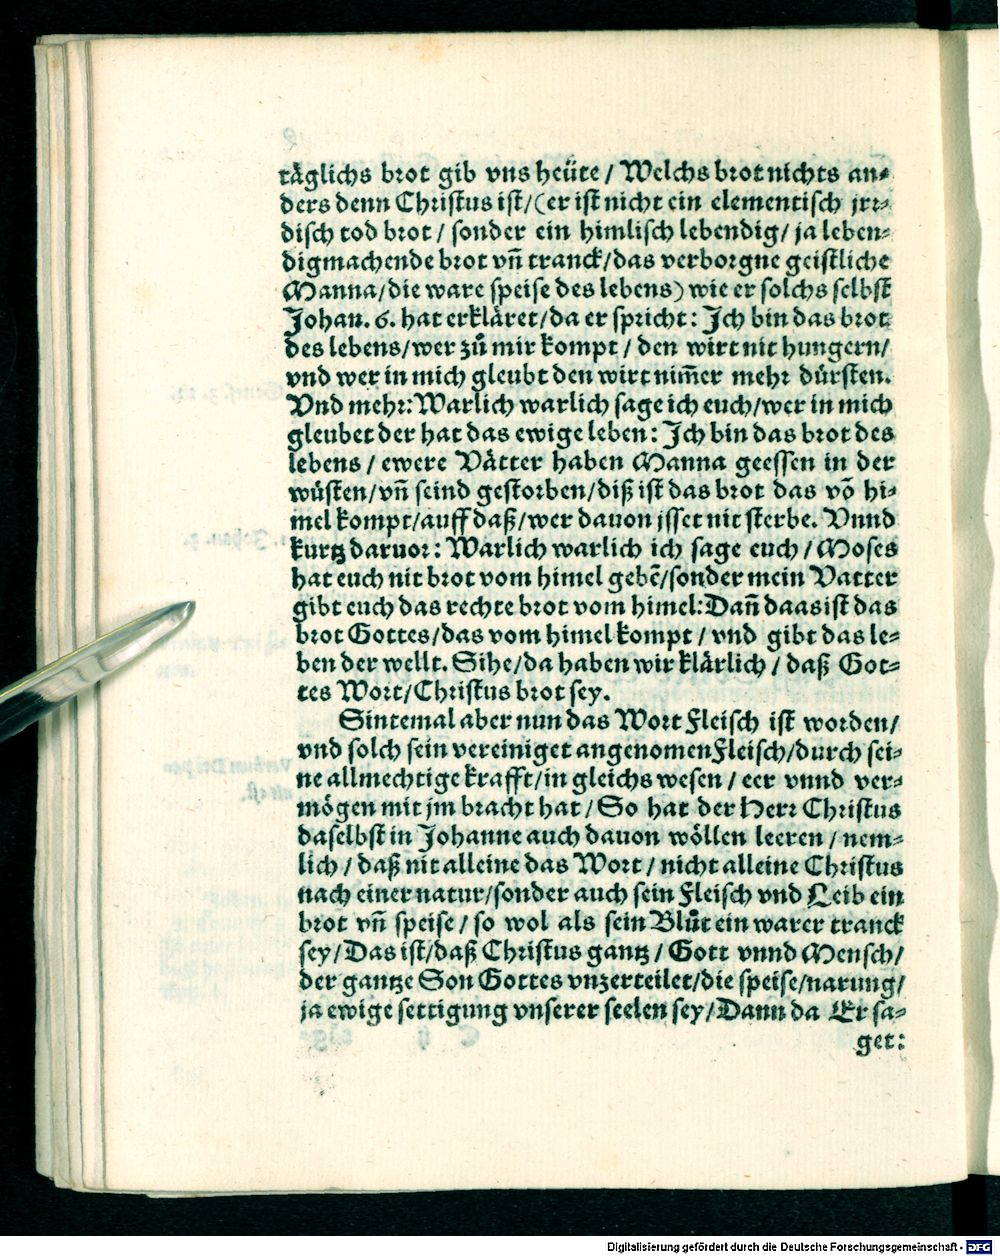 täglichs brot gib vns heüte / Welchs brot nichts an-
ders denn Christus ist/(er ist nicht ein elementisch jrr-
disch tod brot / sonder ein himlisch lebendig/ ja leben-
digmachende brot vn̄ tranck/das verborgne geistliche
Manna/die ware speise des lebens) wie er solchs selbst
Johan. 6. hat erkläret/da er spricht: Ich bin das brot
des lebens/wer zů mir kompt / den wirt nit hungern/
vnd wer in mich gleubt den wirt nim̄er mehr dürsten.
Vnd mehr: Warlich warlich sage ich euch/wer in mich
gleubet der hat das ewige leben: Ich bin das brot des
lebens / ewere Vätter haben Manna geessen in der
wüsten/vn̄ seind gestorben/diß ist das brot das vō hi-
mel kompt/auff daß/wer dauon jsset nit sterbe. Vnnd
kurtz daruor: Warlich warlich ich sage euch / Moses
hat euch nit brot vom himel gebē/sonder mein Vatter
gibt euch das rechte brot vom himel: Dan̄ daas ist das
brot Gottes/das vom himel kompt / vnd gibt das le-
ben der wellt. Sihe/da haben wir klärlich / daß Got-
tes Wort/Christus brot sey.
Sintemal aber nun das Wort Fleisch ist worden/
vnd solch sein vereiniget angenomen Fleisch/durch sei-
ne allmechtige krafft/in gleichs wesen / eer vnnd ver-
mögen mit jm bracht hat / So hat der Herr Christus
daselbst in Johanne auch dauon wöllen leeren / nem-
lich / daß nit alleine das Wort / nicht alleine Christus
nach einer natur/sonder auch sein Fleisch vnd Leib ein
brot vn̄ speise / so wol als sein Blůt ein warer tranck
sey/ Das ist/daß Christus gantz / Gott vnnd Mensch/
der gantze Son Gottes vnzerteilet/die speise/narung/
ja ewige settigung vnserer seelen sey/ Dann da Er sa-
get:
Digitalisierung gefördert durch die Deutsche Forschungsgemeinschaft - DFG